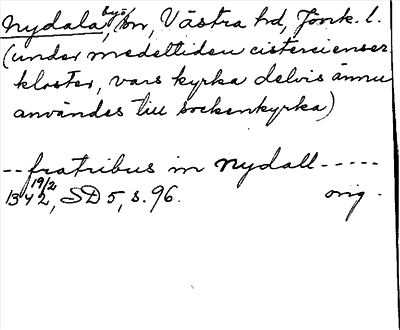 Nydala, by o. sn, Västra hd, Jönk. l.
(under medeltiden cistercienser
kloster, vars kyrka delvis ännu
användes till sockenkyrka)
-- fratribus in nydall -----
1342 19/2, SD 5, s. 96. orig.